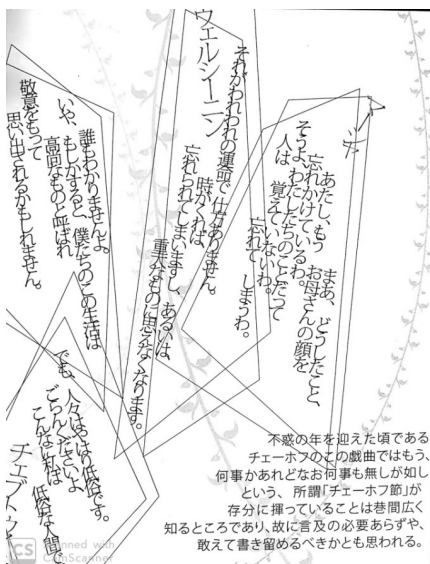 マーシャ
まあ、どうしたこと、
あたし、もう お母さんの顔を
忘れかけているわ。
そうよ、わたしたちのことだって
人は 覚えていないわ。
忘れて しまうわ。
ウェルシーニン
それがわれわれの運命で仕方ありません。
時がくれば
忘れられてしまいますし、あるいは、
重大なものに思えなくなります。
誰もわかりませんよ。
いや、もしかすると、僕たちのこの生活は
高尚なものと呼ばれ
敬意をもって
思い出されるかもしれません。
チェブトゥ
でも、人々はやはり低俗です。
ごらんくださいよ
こんなに私は 低俗な人間で
不惑の年を迎えた頃である
チェーホフのこの戯曲ではもう、
何事かあれどなお何事も無しが如し
という、所謂「チェーホフ節」が
存分に揮っていることは巷間広く
知るところであり、故に言及の必要あらずや、
敢えて書き留めるべきかとも思われる。
CS Scanned with
CamScanner